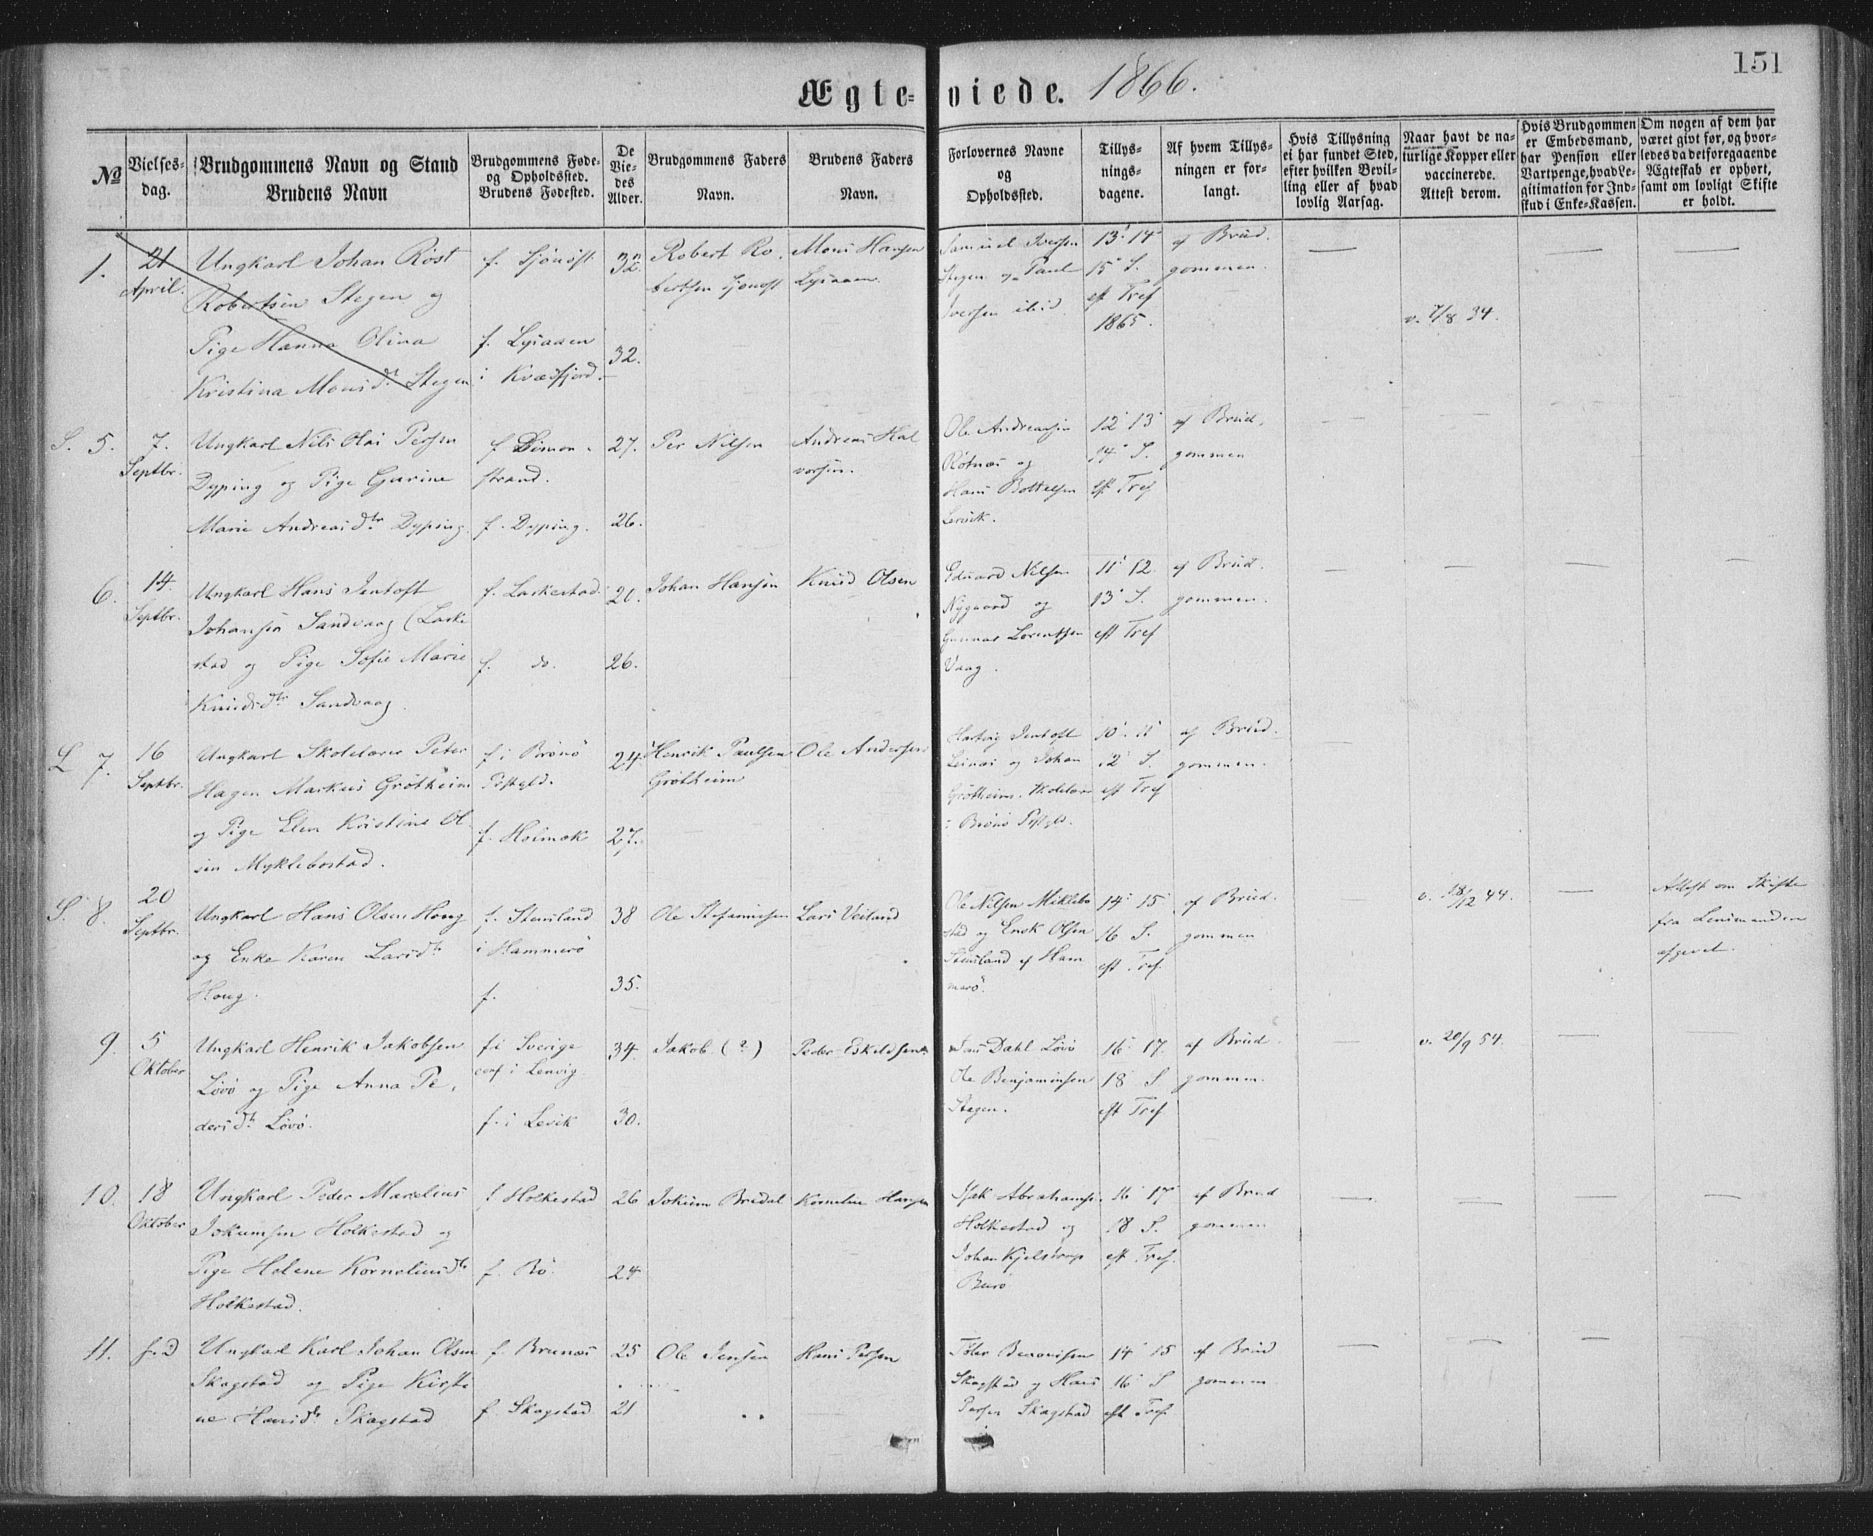 151
Ægte=viede. 1866.
№
Vielses=dag.
Brudgommens Navn og Stand
Brudens Navn
Brudgommens Føde- og Opholdssted.
Brudens Fødested.
De Vie=des Alder.
Brudgommens Faders Navn.
Brudens Faders Navn.
Forlovernes Navne og Opholdssted.
Tillys=nings=dagene.
Af hvem Tillys=ningen er for=langt.
Hvis Tillysning ei har fundet Sted, efter hvilken Bevil=ling eller af hvad lovlig Aarsag.
Naar havt de na=turlige Kopper eller vaccinerede. Attest derom.
Hvis Brudgommen er Embedsmand, har Pension eller Vartpenge, hvad Le=gitimation for Ind=skud i Enke-Kassen.
Om nogen af dem har været givt før, og hvor=ledes da det foregaaende Ægteskab er ophørt, samt om lovligt Skifte er holdt.
1. 21 April.
Ungkarl Johan Röst
Robertsen Stegen og
Pige Hanna Olina
Kristina Monsdtr Stegen
f.
f.
i Kvædfjord.
32
32.
Robert Ro
bertsen
Mons Hansen
Samuel Iversen
Stegen og Paul
Iversen ibid.
13' 14'
15' S.
eft Tref
1865.
af Brud
gommen.
v. 7/8 34.
S. 5. 7. Septbr.
Ungkarl Nils Olai Persen
Dyping og Pige Gurine
Marie Andreasdtr Dyping.
f. Simon
strand.
f. Dyping.
27.
26.
Per Nilsen
Andreas Hal
vorsen.
Ole Andreassen
Rötnæs og
Hans
Lervik.
12' 13'
14' S.
eft Tref
af Brud
gommen
6. 14. Septbr.
Ungkarl Hans Jentoft
Johansen Sandvaag (Laske
stad og Pige Sofie Marie
Knudsdtr Sandvaag.
f. Laskestad.
f. do.
20.
26.
Johan Hansen
Knud Olsen
Eduard Nilsen
Nygaard og
Gunnar Lorentsen
Vaag.
11' 12.
13' S.
eft Tref
af Brud
gommen.
7. 16 Septbr.
Ungkarl Skolelærer Peter
Hagen Markus Grötheim
og Pige Elen Kristine Ol
sen Myklebostad.
f. i Brönö
Pstgld.
f. Holmak
24.
27.
Henrik Paulsen
Grötheim
Ole Andersen
Hartvig Jentoft
Leinæs og Johan
Grötheim. Skolelærer
i Brönö Pstgld.
10' 11'
12' S.
eft Tref
af Brud.
gommen.
S. 8. 20 Septbr.
Ungkarl Hans Olsen Houg
og Enke Karen Larsdtr
Houg.
f. Stensland
i Hammerö
f.
38
35.
Ole
Lars Veiland
Ole Nilsen Miklebo
stad og Enok Olsen
Stensland af Ham
merö.
14' 15'
16 S.
eft Tref.
af Brud
gommen
v. 18/12 44.
Attest om Skifte
fra Lensmanden
afgivet.
9. 5 Oktober
Ungkarl Henrik Jakobsen
Lövö og Pige Anna Pe
dersdtr Lövö.
f. i Sverige
conf i Lenvig.
f. i Levik
34.
30.
Jakob (?)
Peder Eskildsen
Dahl Lövö
Ole Benjaminsen
Stegen.
16' 17.
18' S
eft Tref
af Brud.
gommen.
v. 20/9 54.
10. 18 Oktober
Ungkarl Peder Marelius
Jokumsen Holkestad og
Pige Helene Korneliusdtr
Holkestad.
f Holkestad
f. Bö.
26
24
Jokum Bredal
Kornelius Hansen
Isak Abrahamsen
Holkestad og
Johan Kjelstrup
Burö
16' 17'
18 S.
eft Tref.
af Brud
gommen
11. s.d
Ungkarl Karl Johan Olsen
Skagstad og Pige Kirsti
ne Hansdtr Skagstad
f. Brunæs
f. Skagstad
25
21
Ole Jensen
Hans Persen
Skagstad og Hans
Persen Skagstad
14' 15
16' S
eft Tref
af Brud
gommen